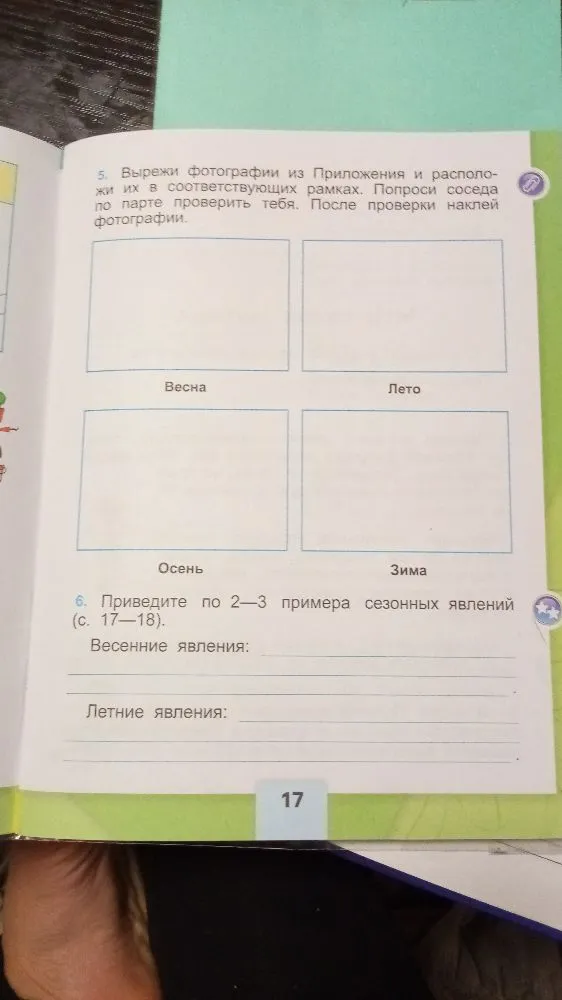 5. Вырежи фотографии из Приложения и располо-
жи их в соответствующих рамках. Попроси соседа
по парте проверить тебя. После проверки наклей
фотографии.
Весна
Лето
Осень
Зима
6. Приведите по 2—3 примера сезонных явлений
(с. 17—18).
Весенние явления:
.
Летние явления:
.
17